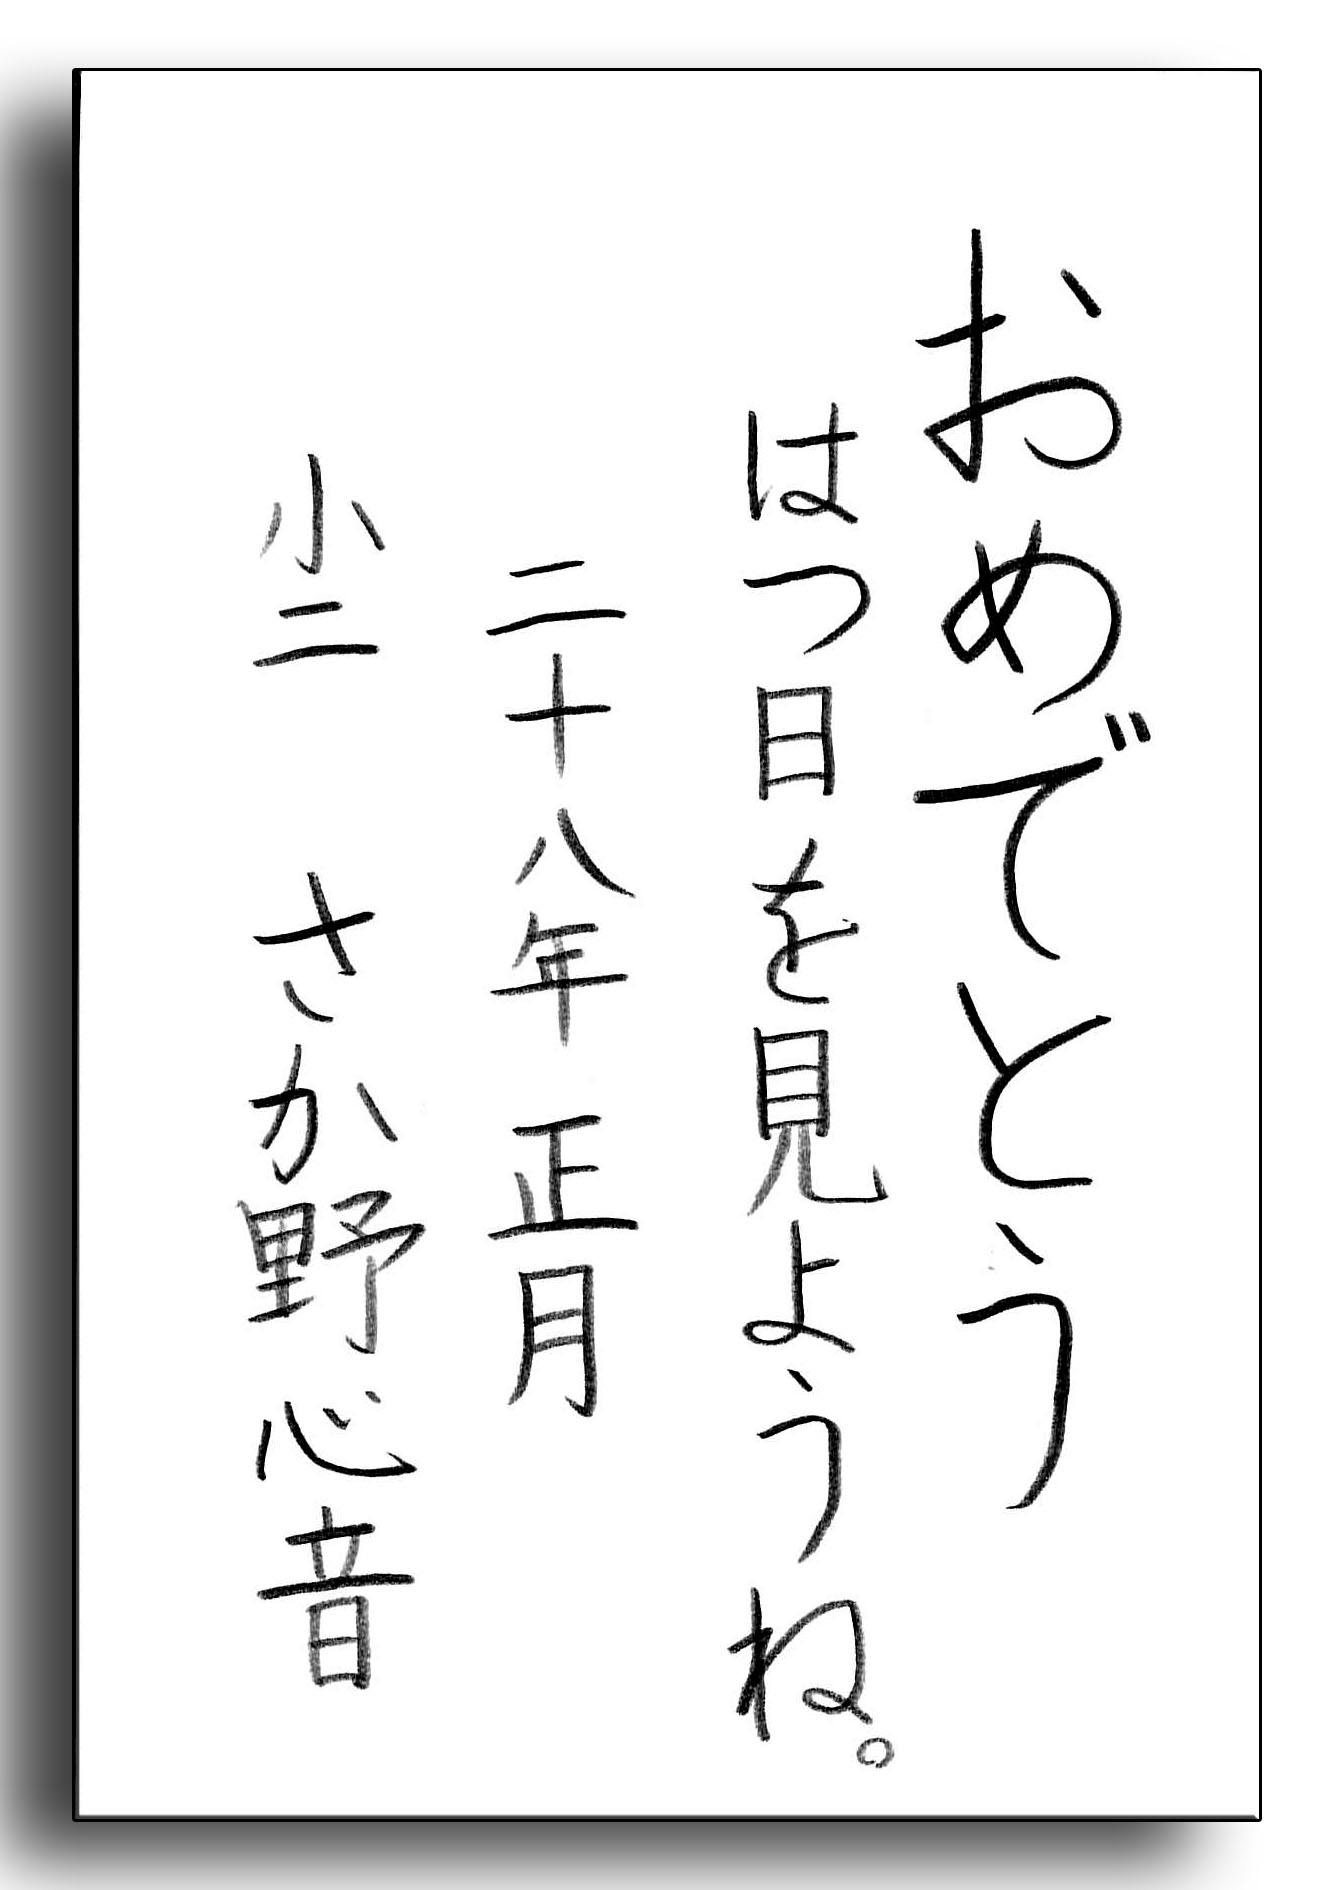 おめでとう
はつ日を見ようね。
二十八年 正月
小二 さか野心音